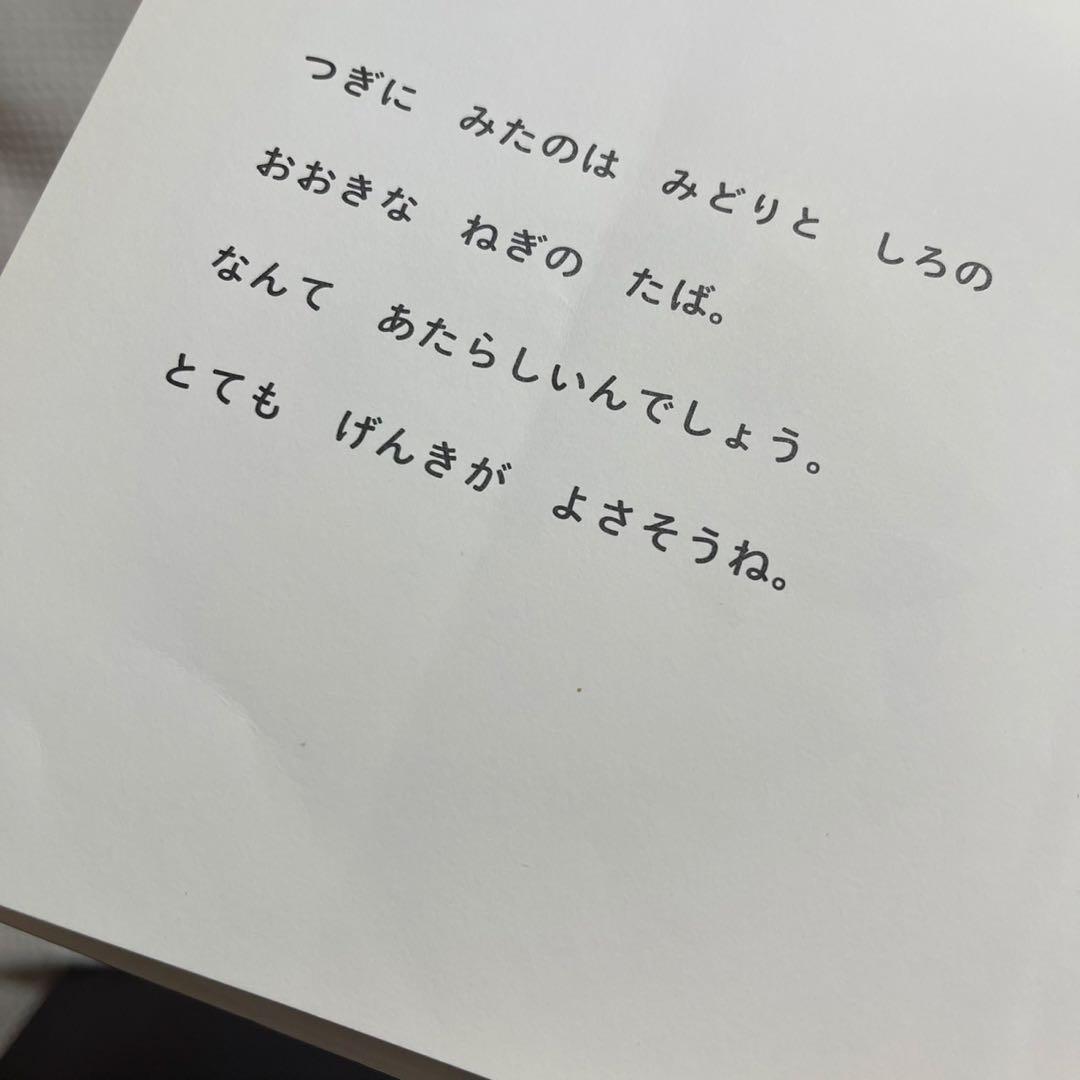 つぎに　みたのは　みどりと　しろの
おおきな　ねぎの　たば。
なんて　あたらしいんでしょう。
とても　げんきが　よさそうね。